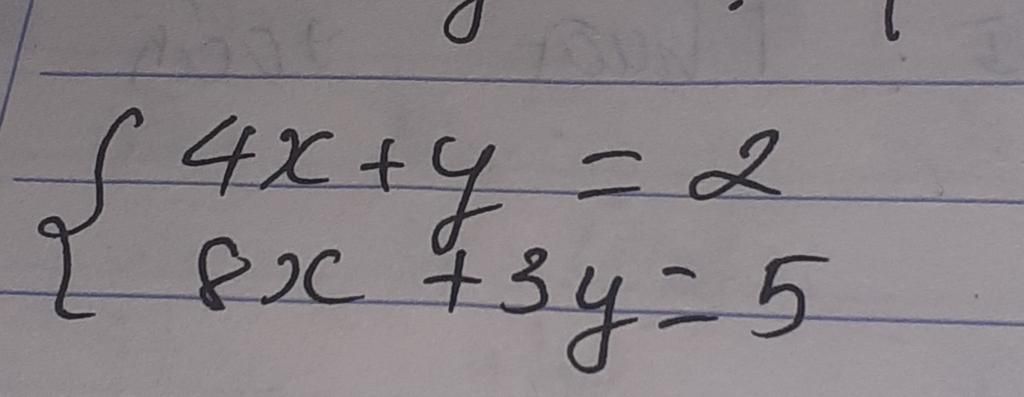 4x + y = 2
8x + 3y = 5